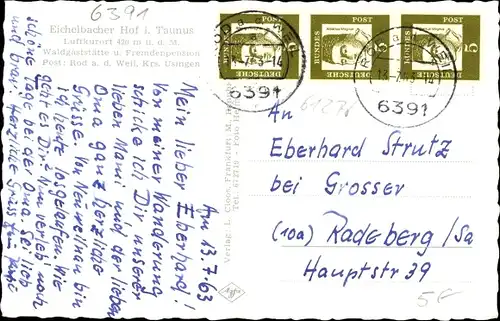 6391
Eichelbacher Hof i. Taunus
Luftkurort 420 m ü. d. M.
Waldgaststätte u. Fremdenpension
Post: Rod a. d. Weil, Krs. Usingen
Am 13.7.63
Mein lieber Eberhard!
Von meiner Wanderung
schicke ich Dir unserer
lieben Mami und der lieben
Oma ganz herzliche
Grüsse. In Neuweilnau bin
ich heute losgelaufen. Wie
geht es Dir? Nun verleb' noch
schöne Tage bei der Oma. Sei lieb
und brav. Herzliche Grüsse
Verlag: L. Cloos, Frankfurt M.
Agfa
DEUTSCHE
BUNDES
POST
5
DEUTSCHE
BUNDES
POST
5
DEUTSCHE
BUNDES
POST
5
6391
13.-7.63-14
6391
An
Eberhard Strutz
bei Grosser
(10a) Radeberg/Sa
Hauptstr 39